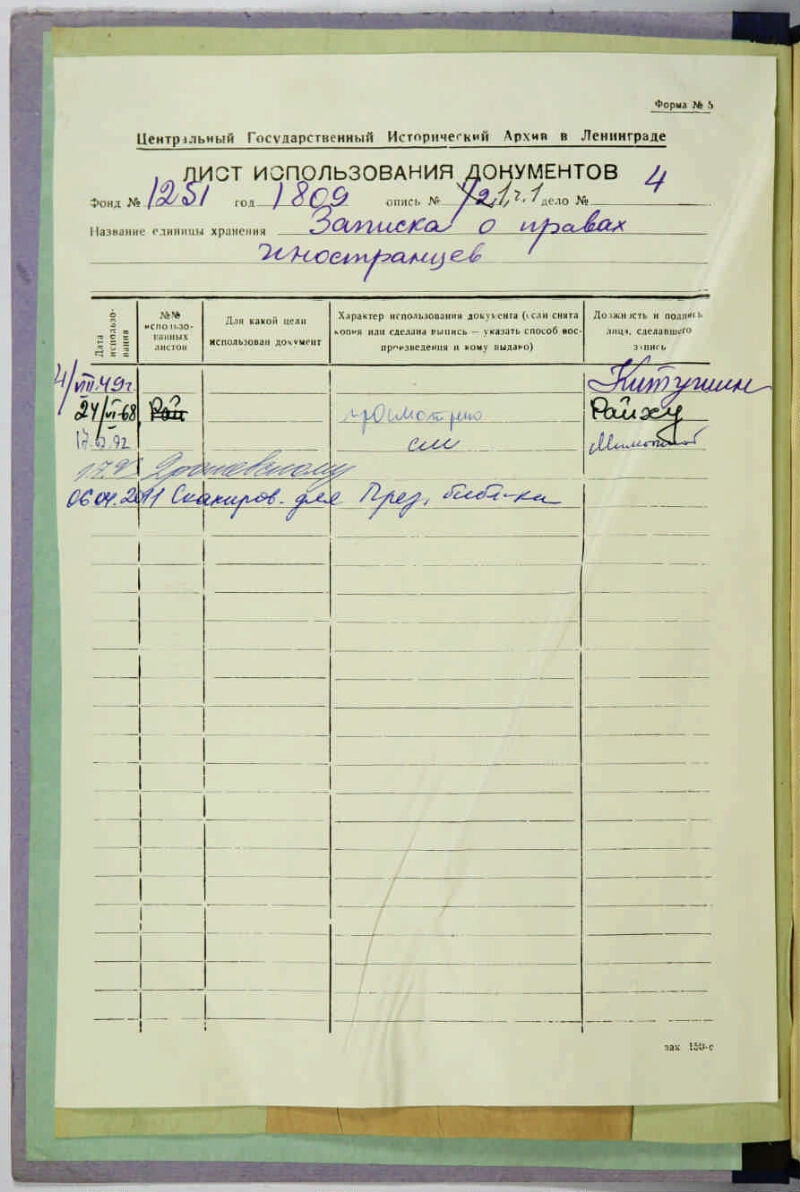 Форма № 5
Центральный Государственный Исторический Архив в Ленинграде
ЛИСТ ИСПОЛЬЗОВАНИЯ ДОКУМЕНТОВ 4
Фонд № 1251 год 1809 опись № дело №
Название единицы хранения Записка о правах
Иностранцев
Дата использования
№№ использованных листов
Для какой цели использован документ
Характер использования документа (если снята копия или сделана выпись — указать способ воспроизведения и кому выдано)
Должность и подпись лица, сделавшего запись
4/VIII.49г
24/VI-68 просмотрено
см
06.04.2011 Сканиров. для През. биб-ки
зак 150-с